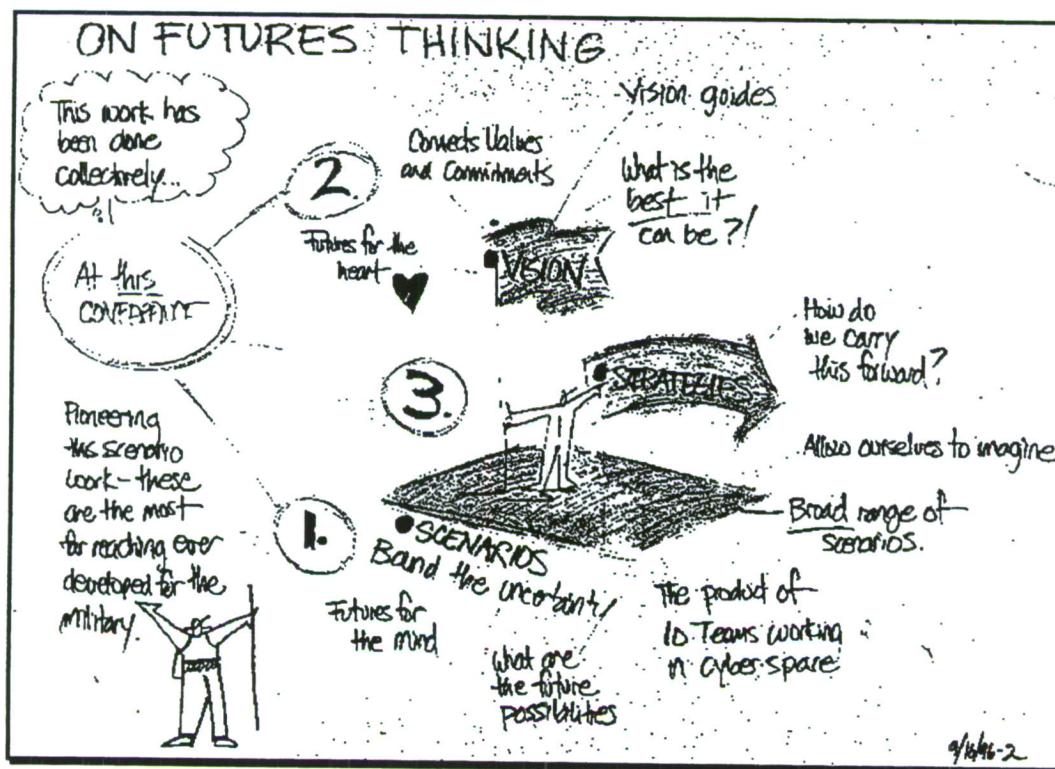 ON FUTURES THINKING
This work has
been done
collectively...
At this
CONFERENCE
2
Futures for the
heart
Connects Values
and Commitments
Vision guides
What is the
best it
can be?!
VISION
3.
STRATEGIES
How do
we carry
this forward?
Allow ourselves to imagine
Broad range of
scenarios.
Pioneering
this scenario
work - these
are the most
far reaching ever
developed for the
military
1.
SCENARIOS
Bound the uncertainty
Futures for
the mind
What are
the future
possibilities
The product of
10 Teams working
in cyber space
9/16/96-2